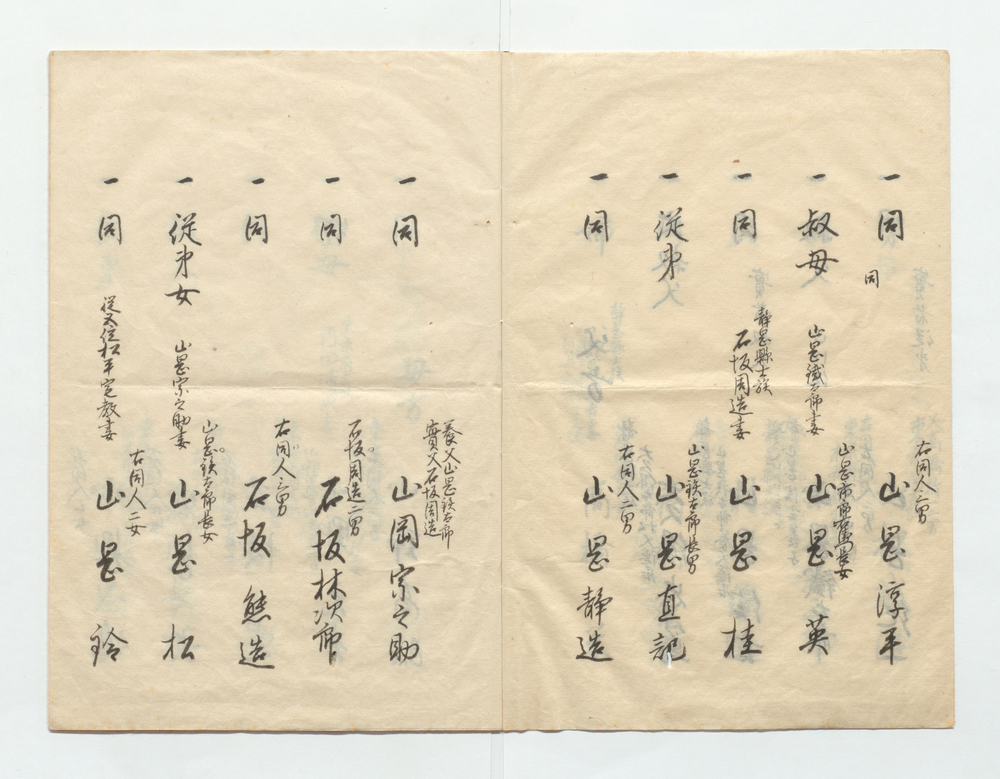 一同 同 右同人三男 山岡淳平
一叔母 山岡鐵太郎妻 山岡市郎右衛門長女 山岡英
一同 静岡縣士族 石坂周造妻 山岡桂
一従弟 山岡鉄太郎長男 山岡直記
一同 右同人二男 山岡静造
一同 養父山岡鉄太郎 實父石坂周造 山岡宗之助
一同 石坂周造二男 石坂林次郎
一同 右同人三男 石坂熊造
一従弟女 山岡宗之助妻 山岡鉄太郎長女 山岡松
一同 従五位松平定教妻 右同人二女 山岡鈴